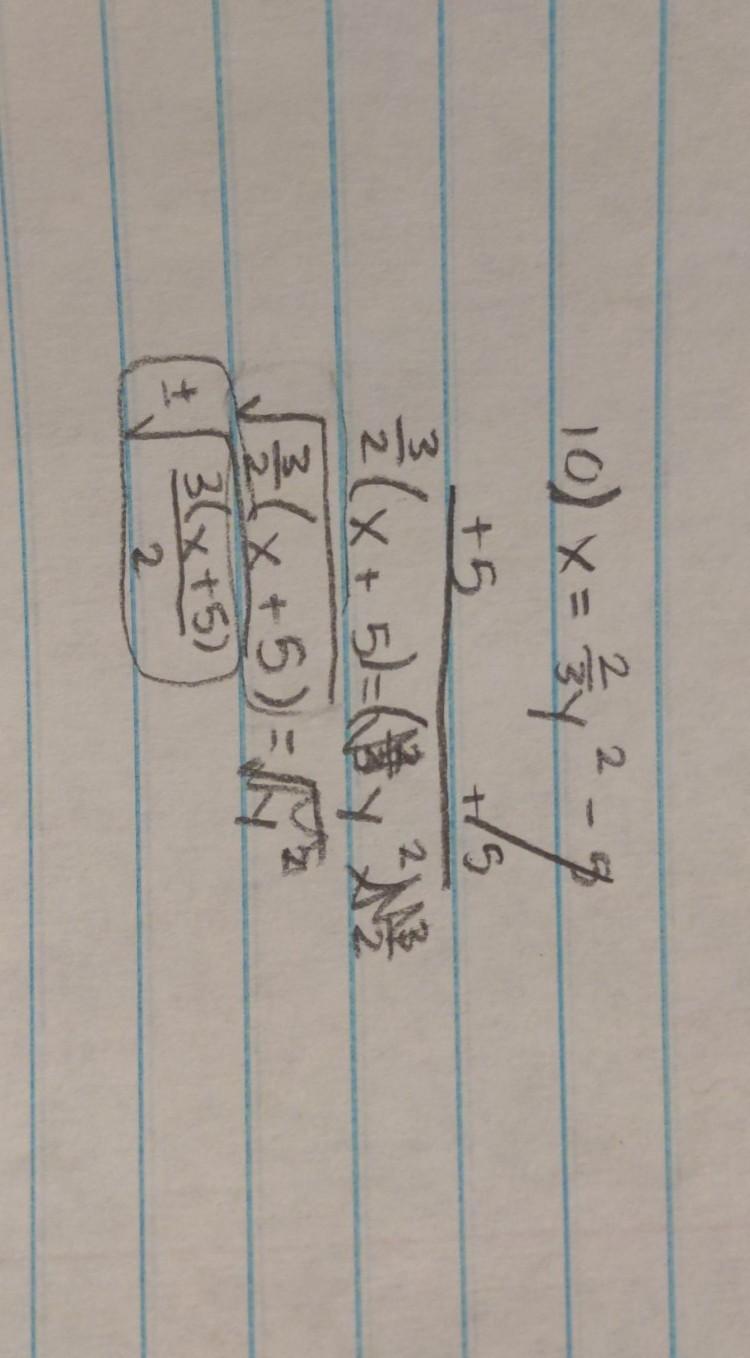 10) x = 2/3 y² - 5
+5 +5
3/2 (x + 5) = (2/3 y²) 3/2
√(3/2 (x + 5)) = √y²
± √(3(x+5)/2)